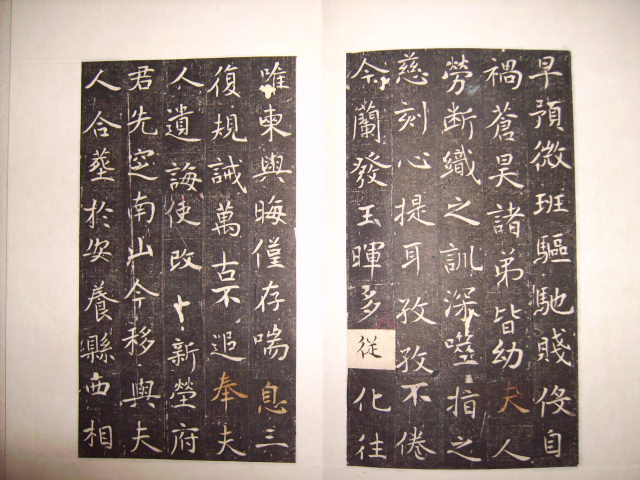 早預微班驅馳賤伇自
禍蒼昊諸弟皆幼夫人
勞斷織之訓深噬指之
慈刻心提耳孜孜不倦
令蘭發玉暉多從化往
唯柬與晦僅存喘息三
復規誡萬古不追奉夫
人遺誨使改卜新塋府
君先定南山今移與夫
人合葬於安養縣西相